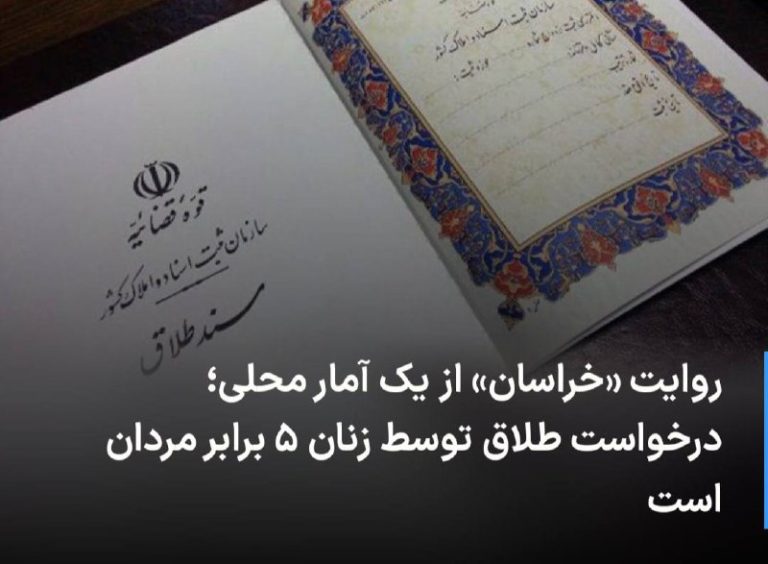 سازمان ثبت اسناد و املاک کشور
قوه قضائیه
سازمان ثبت اسناد و املاک کشور
سند طلاق
روایت «خراسان» از یک آمار محلی؛
درخواست طلاق توسط زنان ۵ برابر مردان
است